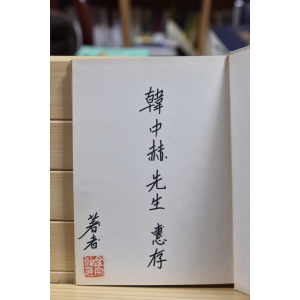 韓中赫 先生 惠存
著者